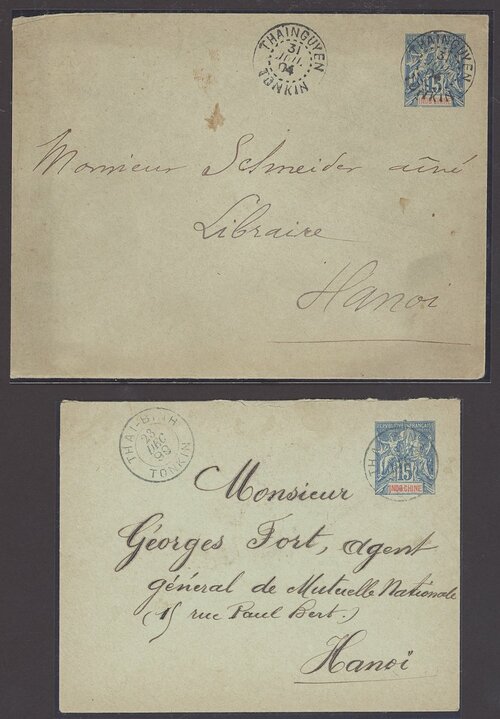 THAINGUYEN
31
JUIL
04
TONKIN
THAINGUYEN
31
TONKIN
15
Monsieur Schneider aîné
Libraire
Hanoi
THAI-BINH
23
DEC
99
TONKIN
REPUBLIQUE FRANCAISE
THAI
15
INDO-CHINE
Monsieur
Géorges Fort, agent
général de Mutuelle Nationale
(15 rue Paul Bert.)
Hanoï